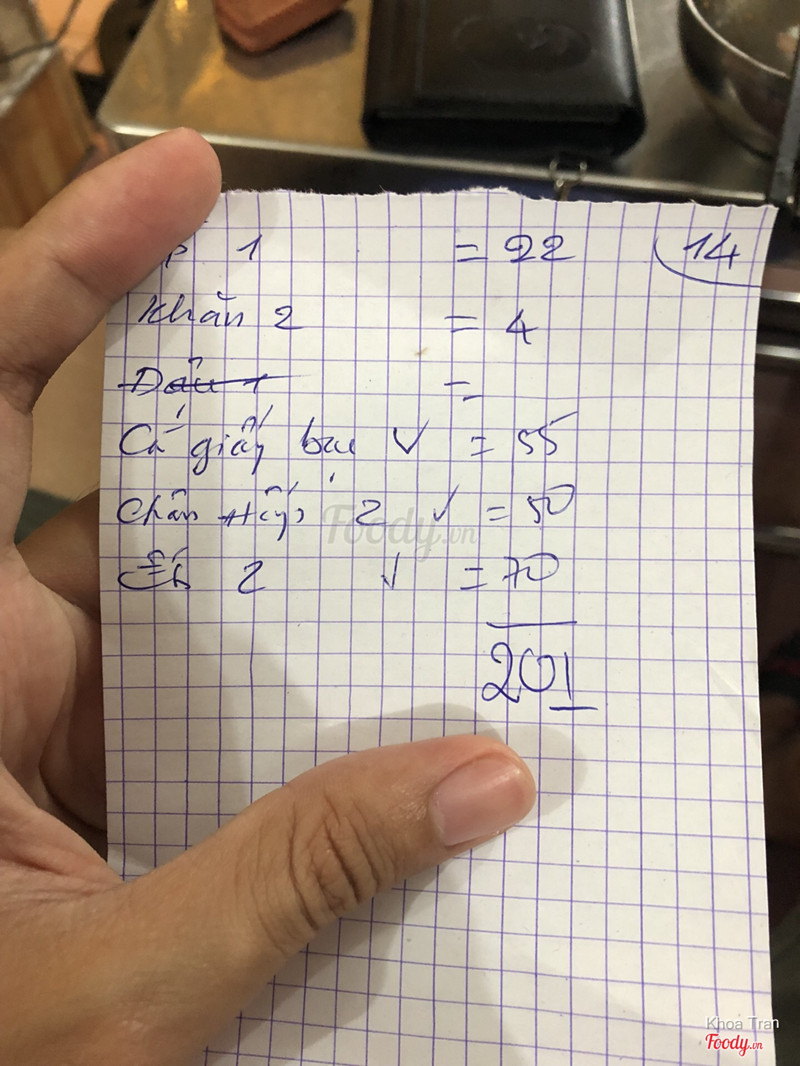 1 = 22 14
Khăn 2 = 4
Dấu 1 =
Cá giấy bạc ✓ = 55
Chân Hấp 2 ✓ = 50
Ếch 2 ✓ = 70
201
Foody.vn
Khoa Tran
Foody.vn